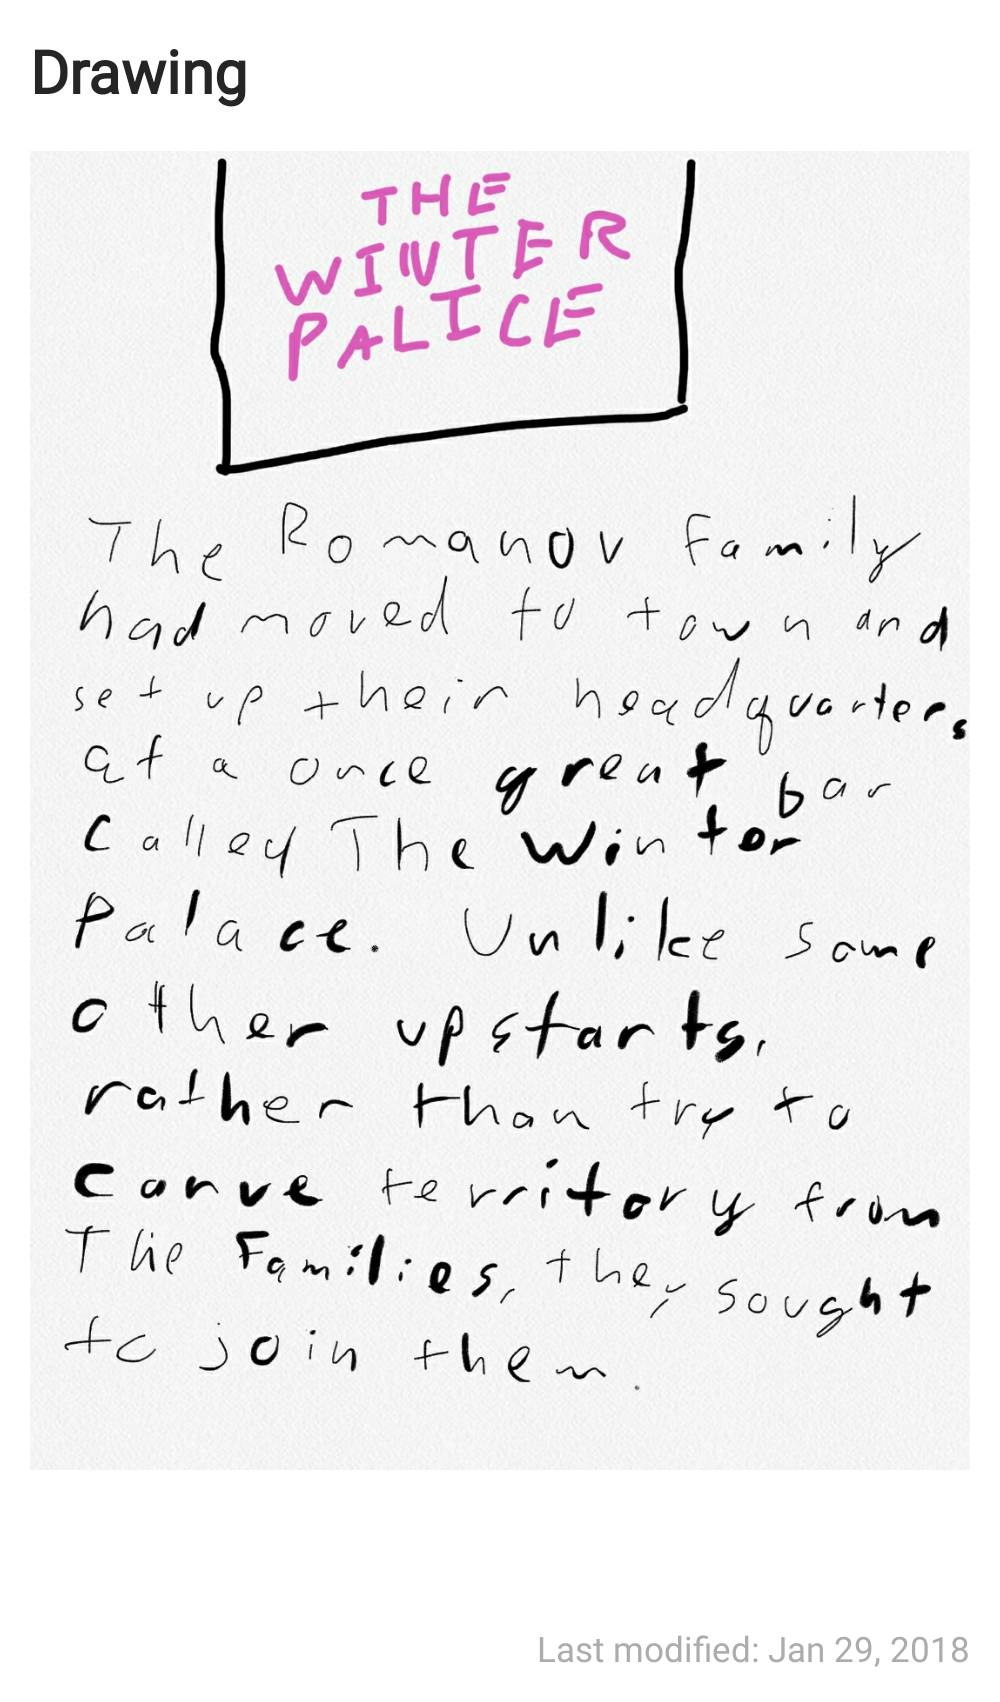 Drawing
THE
WINTER
PALICE
The Romanov family
had moved to town and
set up their headquarters
at a once great bar
Called The Winter
Palace. Unlike some
other upstarts,
rather than try to
carve territory from
The Families, they sought
to join them.
Last modified: Jan 29, 2018